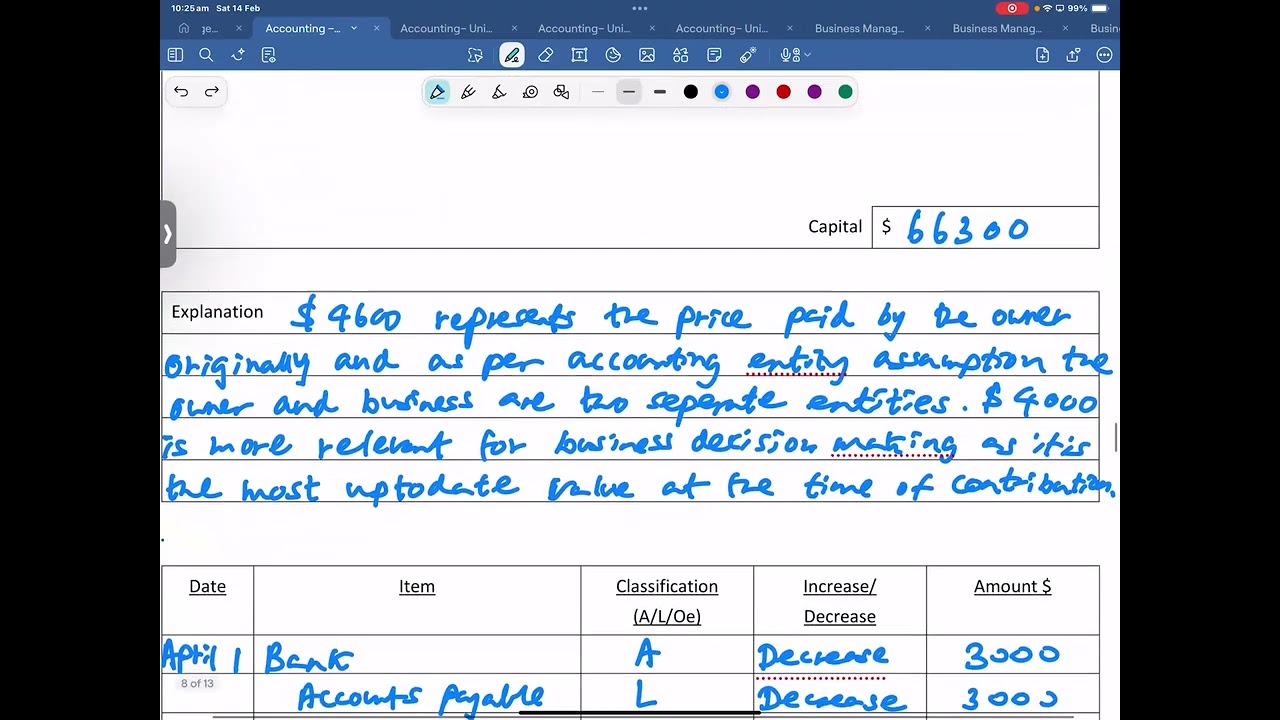 10:25am Sat 14 Feb
99%
ge...
Accounting –...
Accounting– Uni...
Accounting– Uni...
Accounting– Uni...
Business Manag...
Business Manag...
Busin
Capital $ 66300
Explanation $ 4600 represents the price paid by the owner
originally and as per accounting entity assumption the
owner and business are two seperate entities. $ 4000
is more relevant for business decision making as it is
the most uptodate value at the time of contribution.
Date Item Classification (A/L/Oe) Increase/ Decrease Amount $
April 1 Bank A Decrease 3000
Accounts Payable L Decrease 3000
8 of 13